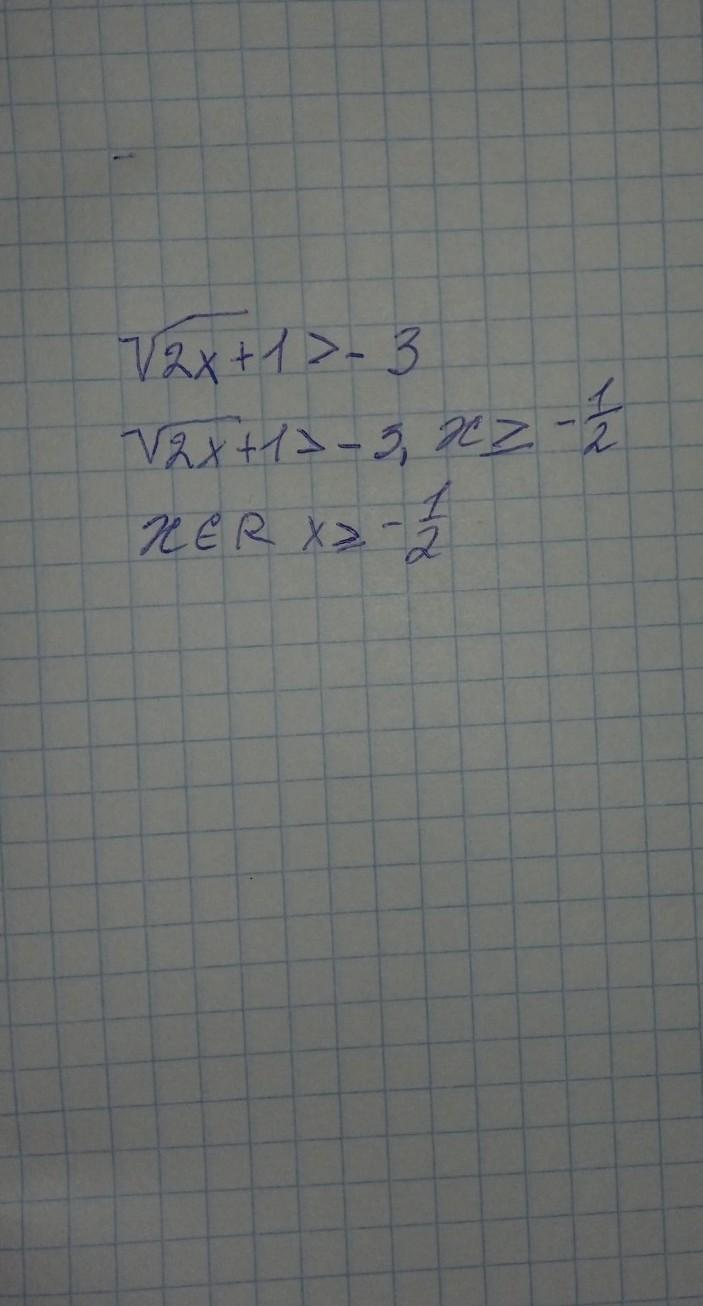 √2x+1 > -3
√2x+1 > -3, x ≥ -1/2
x∈R x ≥ -1/2